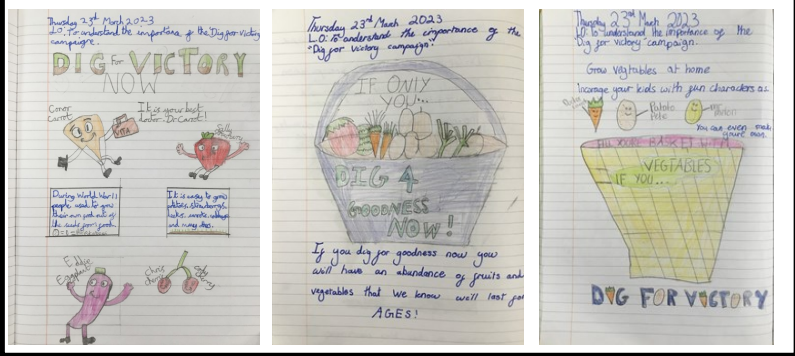 Thursday 23rd March 2023
L.O. To understand the importance of the Dig for Victory
campaign.
DIG for VICTORY
NOW
Conor
Carrot
It is your best
Doctor Carrot!
VITA
During World War II
people used to grow
their own
It is easy to grow
potatoes, strawberrys,
and many more.
Eddie
Eggplant
Chris
cherry
Thursday 23rd March 2023
L.O. To understand the importance of the
"Dig for Victory campaign".
IF ONLY
YOU...
DIG 4
GOODNESS
NOW!
If you dig for goodness now you
will have an abundance of fruits and
vegetables that we know we'll last for
AGES!
Thursday 23rd March 2023
L.O. To understand the importance of the
Dig for Victory campaign.
Grow vegtables at home
Incorage your kids with fun characters as
Potato
Pete
You can even make
your own.
FILL YOUR BASKET WITH
VEGTABLES
IF YOU...
DIG FOR VICTORY